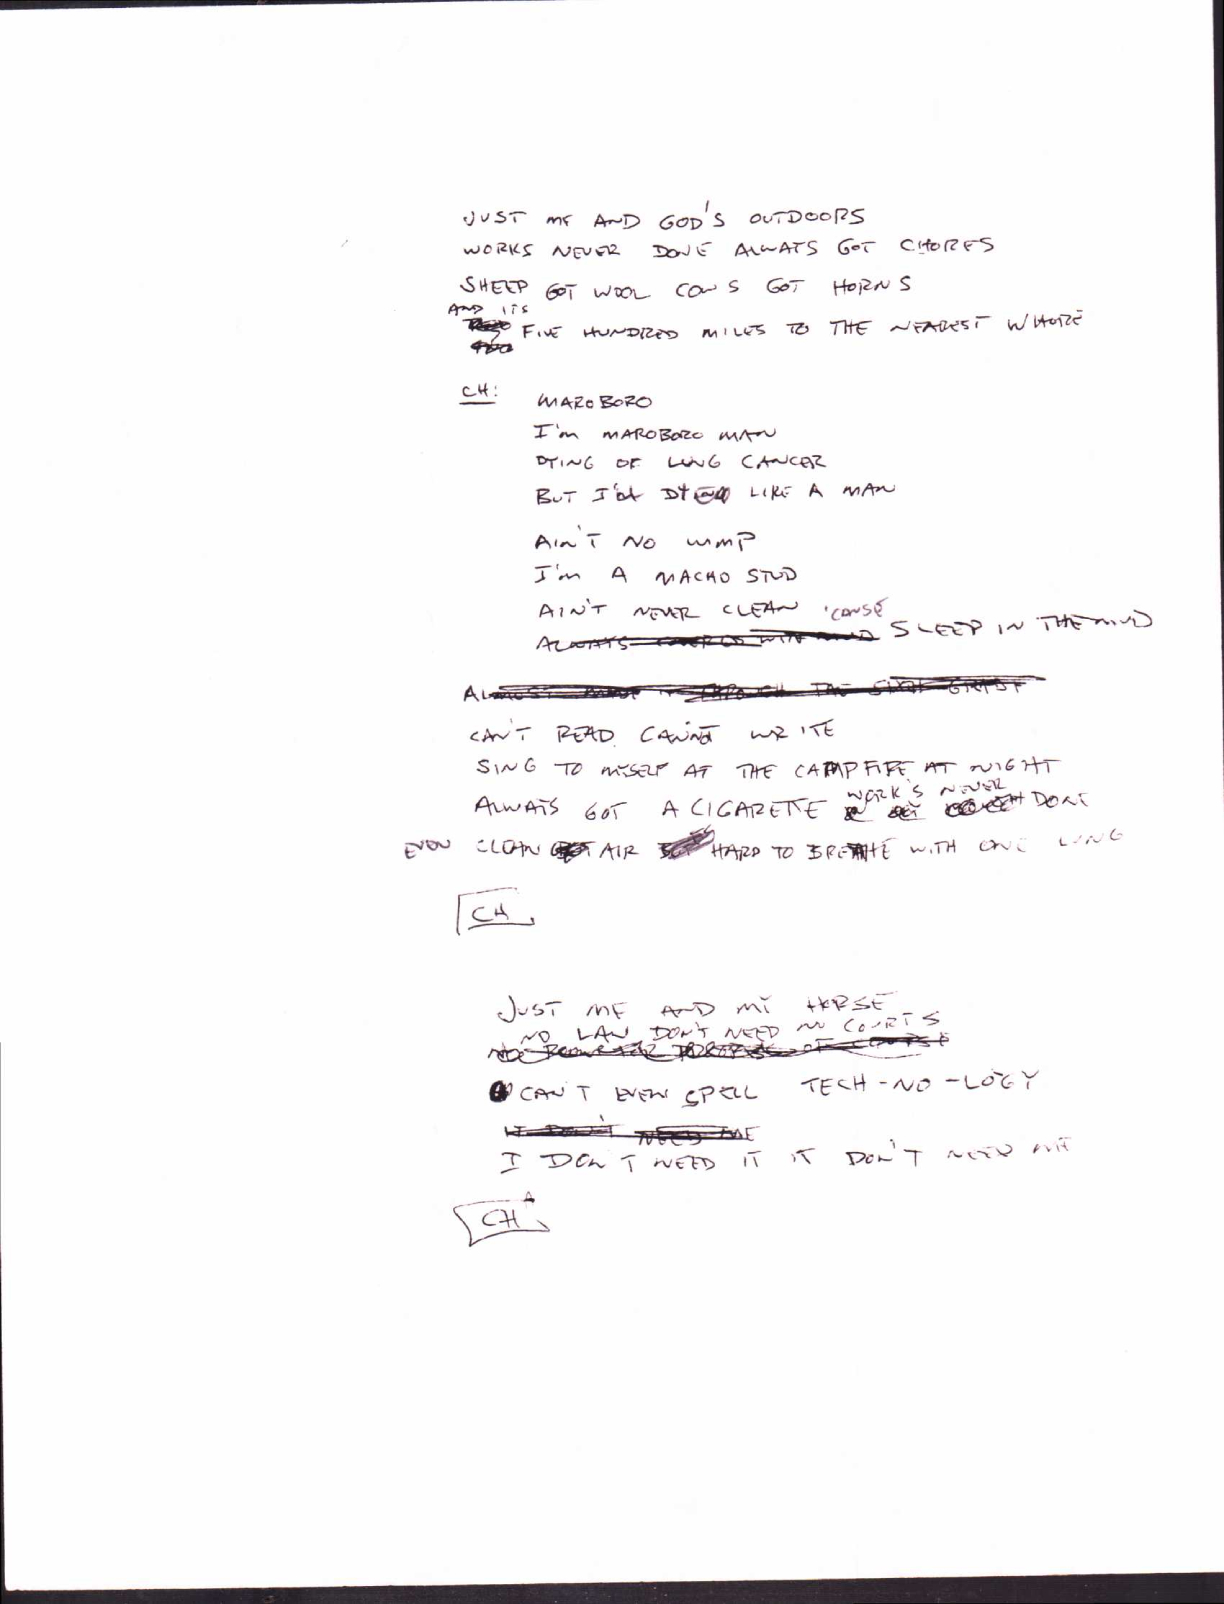 JUST ME AND GOD'S OUTDOORS
WORKS NEVER DONE ALWAYS GOT CHORES
SHEEP GOT WOOL COWS GOT HORNS
AND ITS
FIVE HUNDRED MILES TO THE NEAREST WHORE
CH:
MAROBORO
I'm MAROBORO MAN
DYING OF LUNG CANCER
BUT I'd DYING LIKE A MAN
AIN'T NO WIMP
I'm A MACHO STUD
AIN'T NEVER CLEAN 'CAUSE
ALWAYS COVERED WITH MUD SLEEP IN THE MUD
ALMOST MADE IT THROUGH THE GRADE
CAN'T READ CANNOT WRITE
SING TO MYSELF AT THE CAMPFIRE AT NIGHT
WORK'S NEVER
ALWAYS GOT A CIGARETTE DONE
EVEN CLEAN AIR HARD TO BREATHE WITH ONE LUNG
CH
JUST ME AND MY HORSE
NO LAW DON'T NEED NO COURTS
CAN'T EVEN SPELL TECH-NO-LOGY
IT DON'T NEED ME
I DON'T NEED IT IT DON'T NEED ME
CH